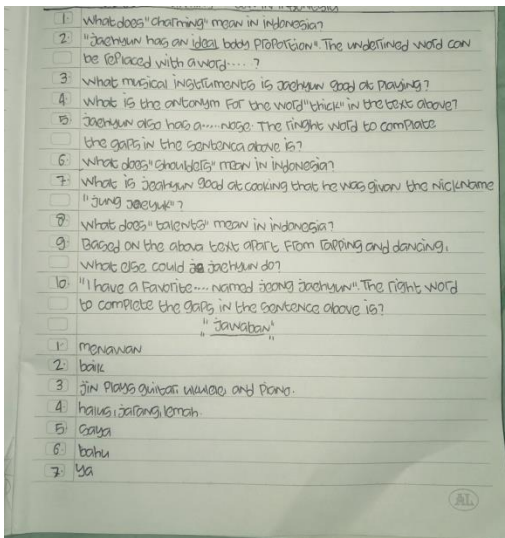 1. What does "charming" mean in indonesia?
2. "Jaehyun has an ideal body Proportion". The underlined word can
be replaced with a word.....?
3. What musical instruments is Jaehyun good at Playing?
4. What is the antonym For the word "thick" in the text above?
5. Jaehyun also has a..... nose. The ringht word to complate
the gaps in the sentence above is?
6. What does "shoulders" mean in indonesia?
7. What is jeahyun good at cooking that he was givan the nickname
"jung jaeyuk"?
8. What does "talents" mean in indonesia?
9. Based on the above text apart From rapping and dancing,
what else could jaehyun do?
10. "I have a Favorite.... named jeong jaehyun". The right word
to complete the gaps in the sentence above is?
"jawaban"
1. menawan
2. baik
3. jin Plays guitar, ukulele, and Piano.
4. halus, jarang, lemah.
5. saya
6. bahu
7. Ya
AL